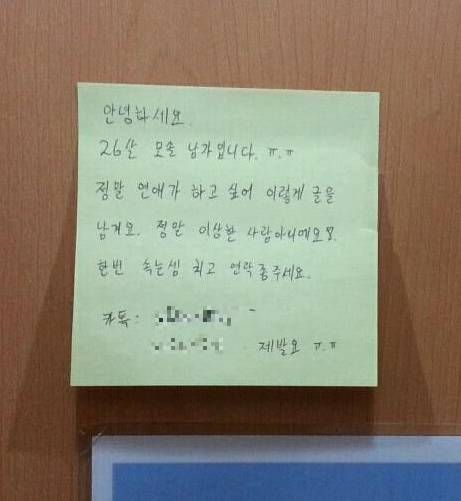 안녕하세요.
26살 모솔 남자입니다. ㅠ.ㅠ
정말 연애가 하고 싶어 이렇게 글을
남겨요. 정말 이상한 사람아니에요!
한번 속는셈 치고 연락좀주세요.
카톡:
제발요 ㅠ.ㅠ